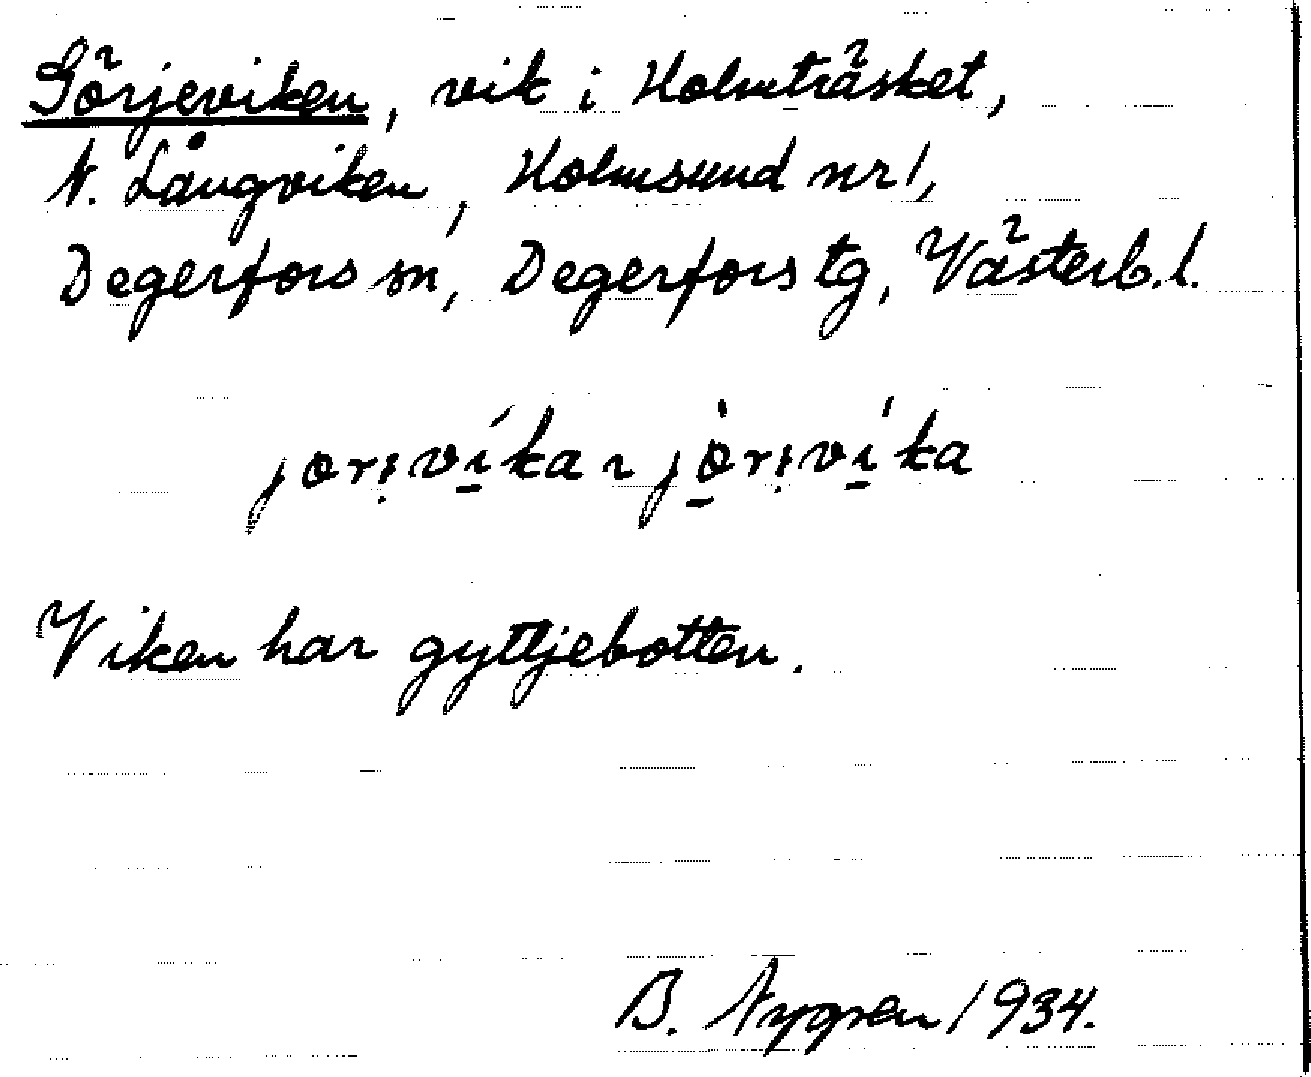 Görjeviken, vik i Holmträsket,
N. Långviken, Holmsund nr 1,
Degerfors sn, Degerfors tg, Västerb. l.
jөrı̣víka ı jө̀rı̣víka
Viken har gyttjebotten.
B. Nygren 1934.